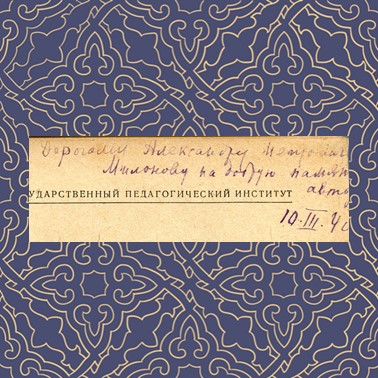 Дорогому Александру Петрович
Милонову на добрую память
УДАРСТВЕННЫЙ ПЕДАГОГИЧЕСКИЙ ИНСТИТУТ
10.III.4